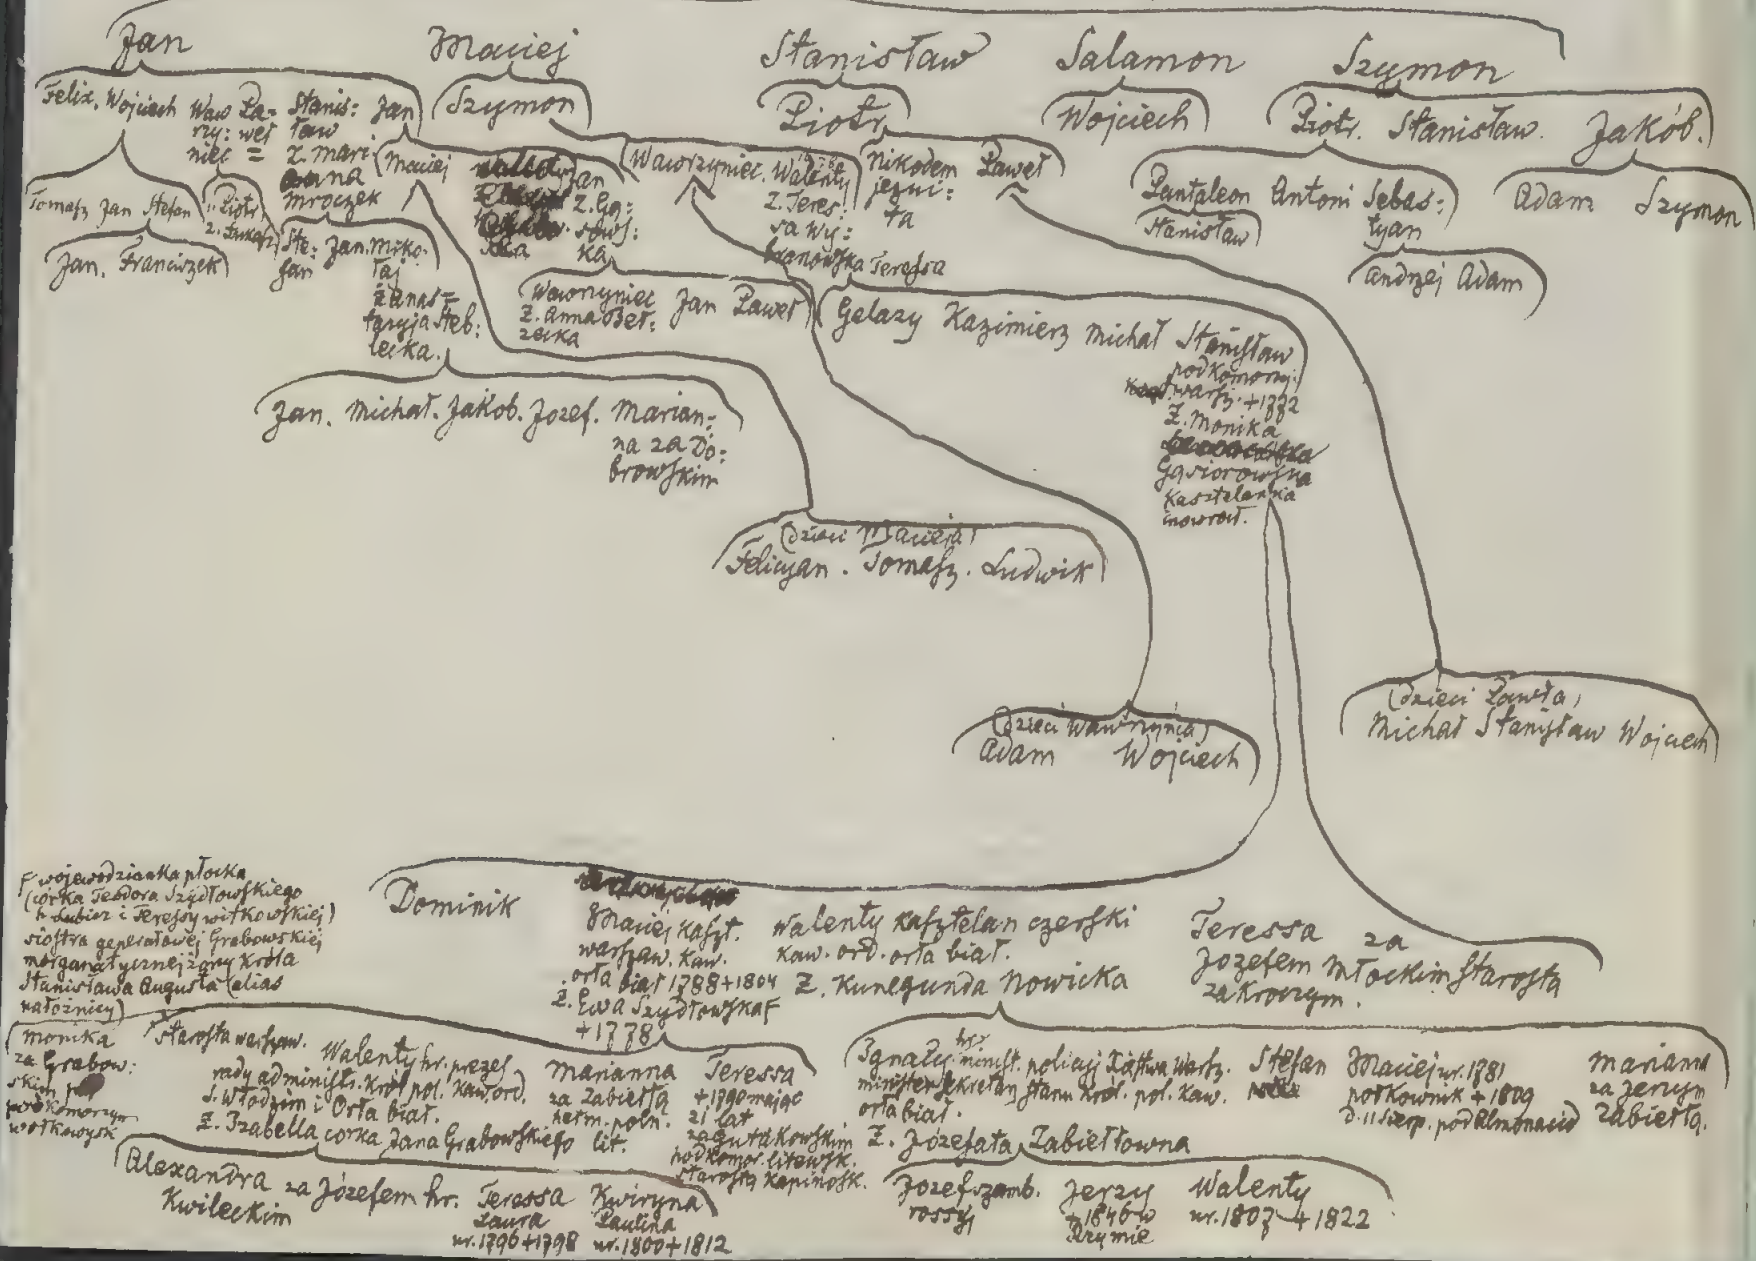 Jan Maciej Stanisław Salamon Szymon
Felix. Wojciech Waw Pa= Stanis: Jan
rzy: weł ław
niec = z. Mari
anna
Mroczek
Szymon
Piotr
Wojciech
Piotr. Stanisław. Jakób.
Tomasz Jan Stefan
Piotr
2. Łukasz
Maciej
Jan
Z. Gą:
sows:
ka
Wawrzyniec. Walenty
Z. Teres:
sa Wy:
branowska
Nikodem Paweł
jezui:
ta
Pantaleon Antoni Sebas:
tyan
Adam Szymon
Stanisław
Jan. Franciszek
Ste: Jan. Miko:
fan łaj
ż Anas=
tazyja Steb:
lecka.
Wawrzyniec Jan Paweł
Z. Anna Beł:
zecka
Teressa
Gelazy Kazimierz Michał Stanisław
podkomorzy
warsz. +1772
Z. Monika
Gąsiorowska
Kasztelanka
inowroł.
Andrzej Adam
Jan. Michał. Jakob. Jozef. Marian:
na za Do:
browskim
(dzieci Macieja)
Felicyan. Tomasz. Ludwik
(dzieci Wawrzyńca)
Adam Wojciech
(dzieci Pawła)
Michał Stanisław Wojciech
F wojewodzianka płocka
(córka Teodora Szydłowskiego
h. Lubicz i Teressy Witkowskiej)
siostra generałowej Grabowskiej
morganatycznej żony Króla
Stanisława Augusta (alias
nałożnicy)
Dominik
Maciej kaszt.
warszaw. kaw.
orła biał 1788 +1804
Z. Ewa Szydłowska F
+1778
Walenty kasztelan czerski
kaw. ord. orła biał.
Z. Kunegunda Nowicka
Teressa za
Jozefem Młockim Starostą
zakroczym.
Monika
za Grabow:
skim
podkomorzym
wołkowysk
Starosta warszaw.
Walenty hr. prezes
rady administr. Król pol. kaw. ord.
S. Włodzim i Orła biał.
Z. Izabella córka Jana Grabowskiego lit.
Marianna
za Zabiełłą
hetm. poln.
Teressa
+1790 mając
21 lat
za Gutakowskim
podkomor. litewsk.
starostą Kapinosk.
Ignacy hr. minist. policyi Xięstwa Warsz.
minister Sekretarz Stanu Król. pol. kaw.
orła biał.
Z. Józefata Zabiełłowna
Stefan
Maciej ur. 1781
połkownik +1809
d. 11 Sierp. pod Almonacid
Marianna
za Jerzym
Zabiełłą.
Alexandra za Józefem hr.
Kwileckim
Teressa
Laura
ur. 1796 +1798
Kwiryna
Paulina
ur. 1800 +1812
Jozef szamb.
rossyj
Jerzy
+1846 w
Rzymie
Walenty
ur. 1807 +1822